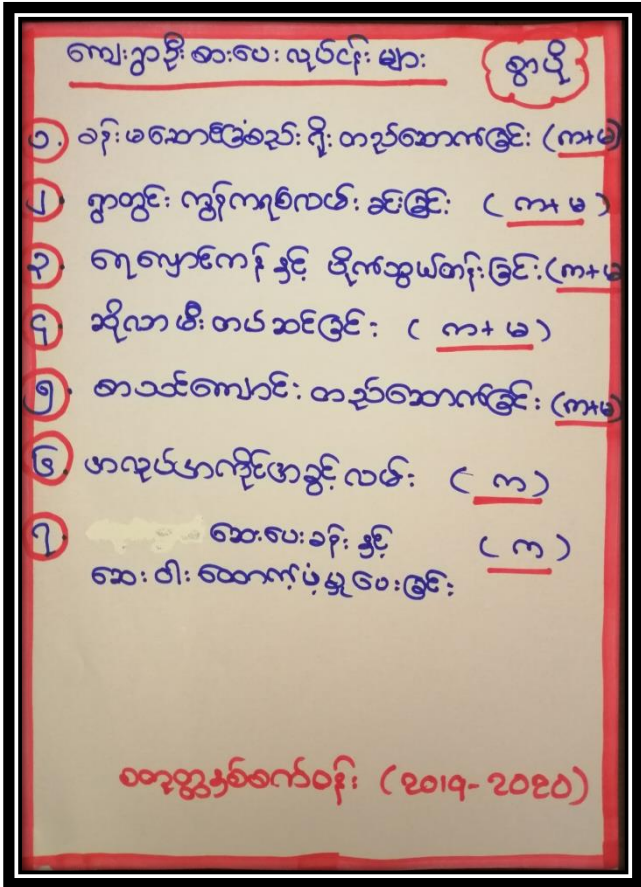 ကျေးရွာဦးစားပေးလုပ်ငန်းများ
ရွာပို
၁. ခန်းမဆောင်ခြံစည်းရိုးတည်ဆောက်ခြင်း (က+မ)
၂. ရွာတွင်း ကွန်ကရစ်လမ်းခင်းခြင်း (က+မ)
၃. ရေလှောင်ကန်နှင့် ပိုက်သွယ်တန်းခြင်း (က+မ
၄. ဆိုလာမီးတပ်ဆင်ခြင်း (က+မ)
၅. စာသင်ကျောင်းတည်ဆောက်ခြင်း (က+မ)
၆. အလုပ်အကိုင်အခွင့်လမ်း (က)
၇. ဆေးပေးခန်းနှင့် (က)
ဆေးဝါးထောက်ပံ့မှုပေးခြင်း
စတုတ္ထနှစ်စက်ဝန်း (၂၀၁၉-၂၀၂၀)